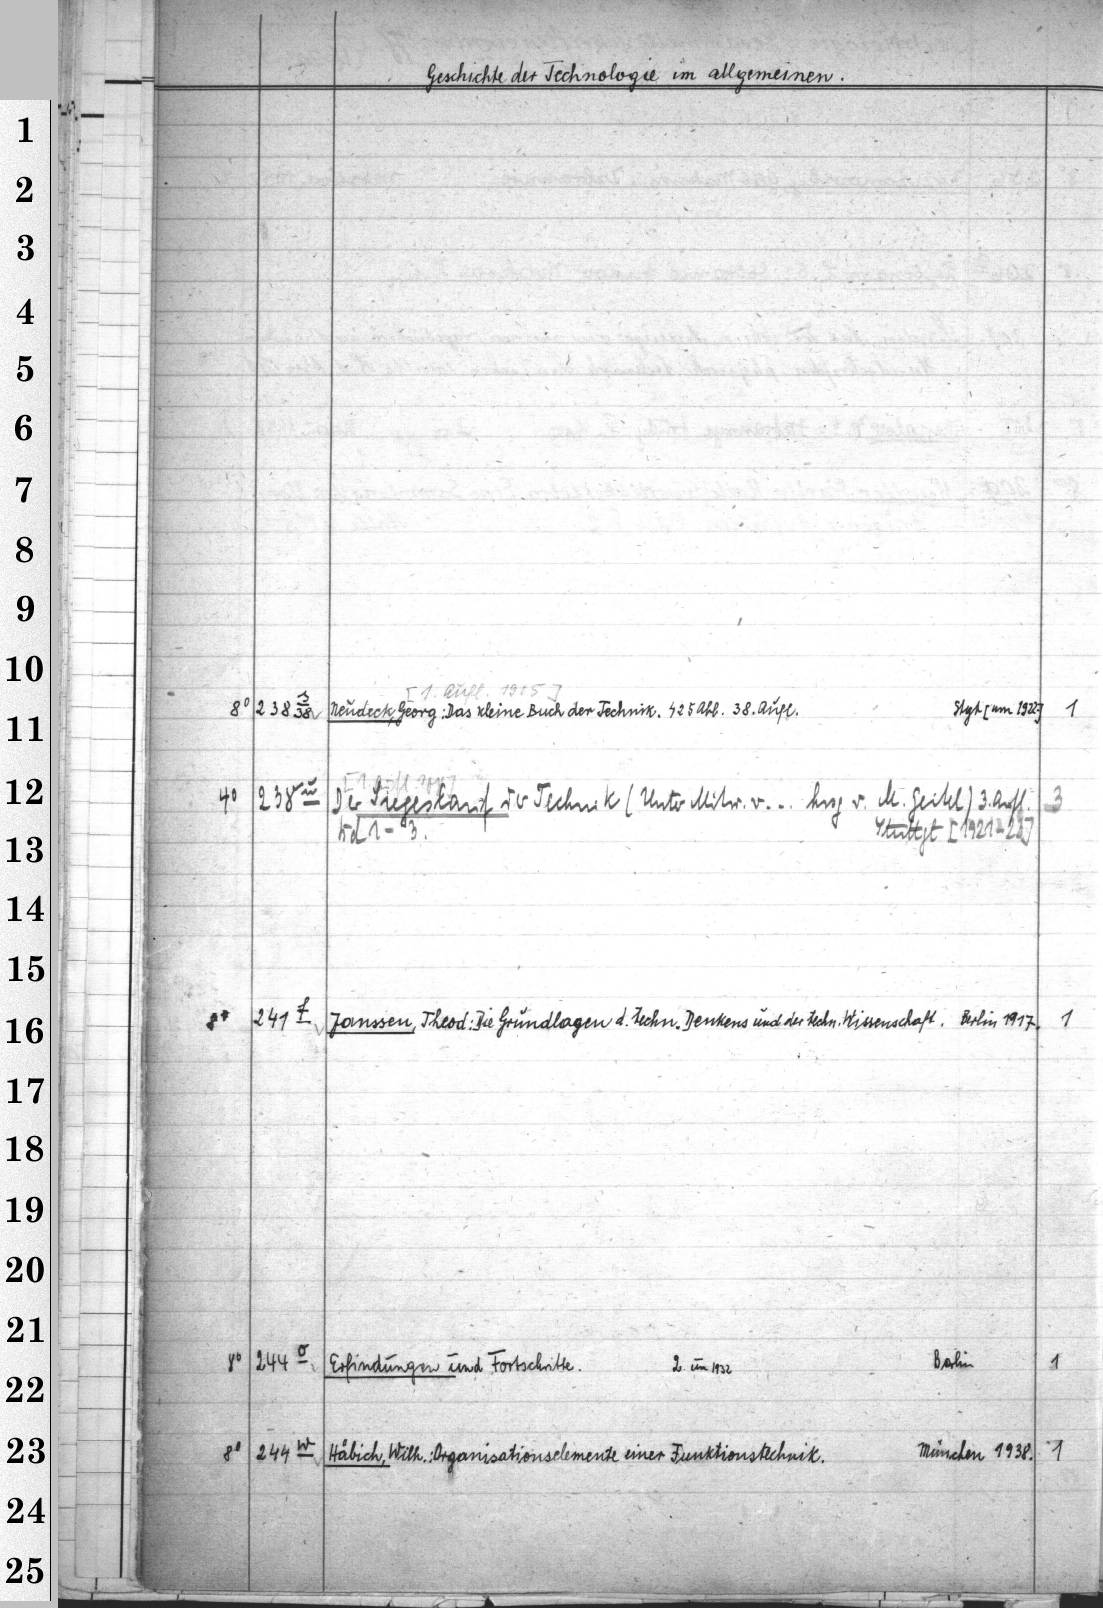 Geschichte der Technologie im allgemeinen.
1
2
3
4
5
6
7
8
9
10
[1. Aufl. 1915]
8° 238 s Neudeck, Georg: Das kleine Buch der Technik. 425 Abb. 38. Aufl. Stgt [um 1922] 1
11
[1. Aufl.
12
4° 238 u Der Siegeslauf der Technik (Unter Mitw. v... hrsg v. M. Geitel) 3. Aufl. 3
Bd 1-3. Stuttgt [1921-23]
13
14
15
8° 241 f Janssen, Theod: Die Grundlagen d. techn. Denkens und der techn. Wissenschaft. Berlin 1917. 1
16
17
18
19
20
21
8° 244 o Erfindungen und Fortschritte. 2. um 1932 Berlin 1
22
23
8° 244 w Häbich, Wilh.: Organisationselemente einer Funktionstechnik. München 1938. 1
24
25